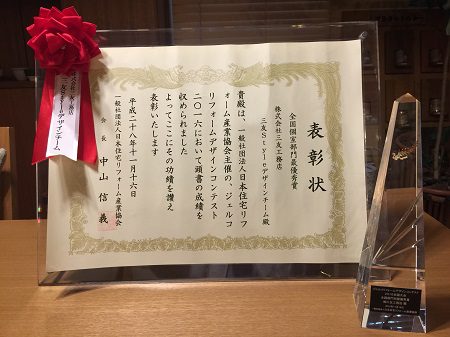 表彰状
全国個室部門最優秀賞
株式会社三友工務店
三友Styleデザインチーム殿
貴殿は、一般社団法人日本住宅リフ
ォーム産業協会主催の、ジェルコ
リフォームデザインコンテスト
二〇一六において頭書の成績を
収められました
よってここにその功績を讃え
表彰いたします
平成二十八年十一月十六日
一般社団法人日本住宅リフォーム産業協会
会長 中山信義
三友Styleデザインチーム